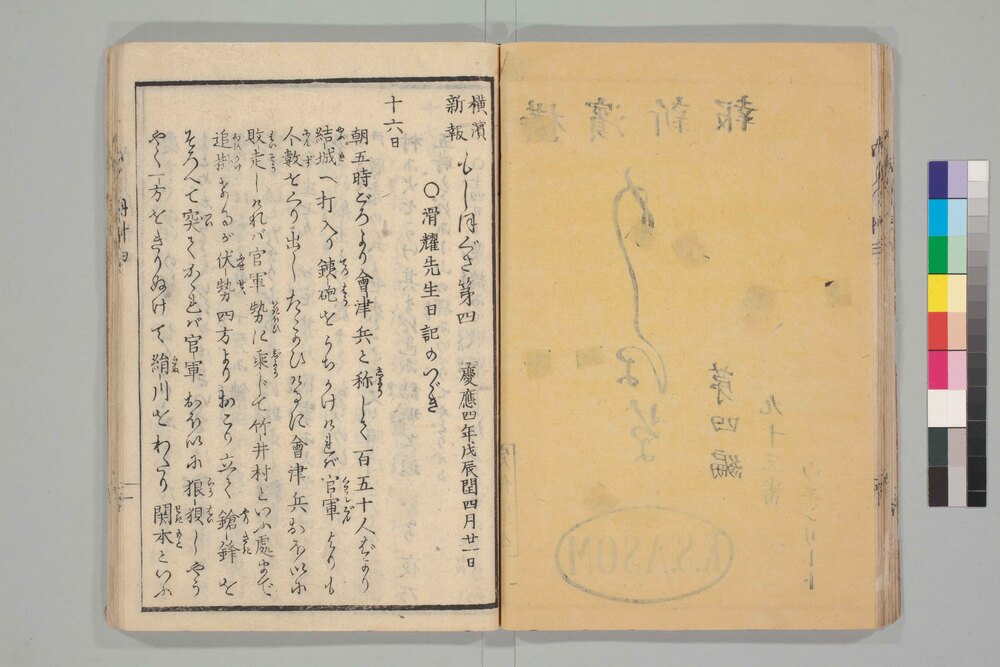 横濱新報 もしほぐさ第四 慶應四年戊辰閏四月廿一日
〇滑耀先生日記のつゞき
十六日
朝五時ごろより會津兵と称しく百五十人ばかり
結城へ打入り銕砲をうちかけけれバ官軍よりも
人数をくり出したゝかひけるに會津兵おほいに
敗走しけれバ官軍勢に乗じて竹井村といふ處まで
追掛けるが伏勢四方よりおこり立て鎗鋒を
そろへて突てかゝれバ官軍おほいに狼狽しやう
やく一方をきりぬけて絹川をわたり関本といふ
横濱新報
もしほ草
第四編
九十三番
ウエンリート